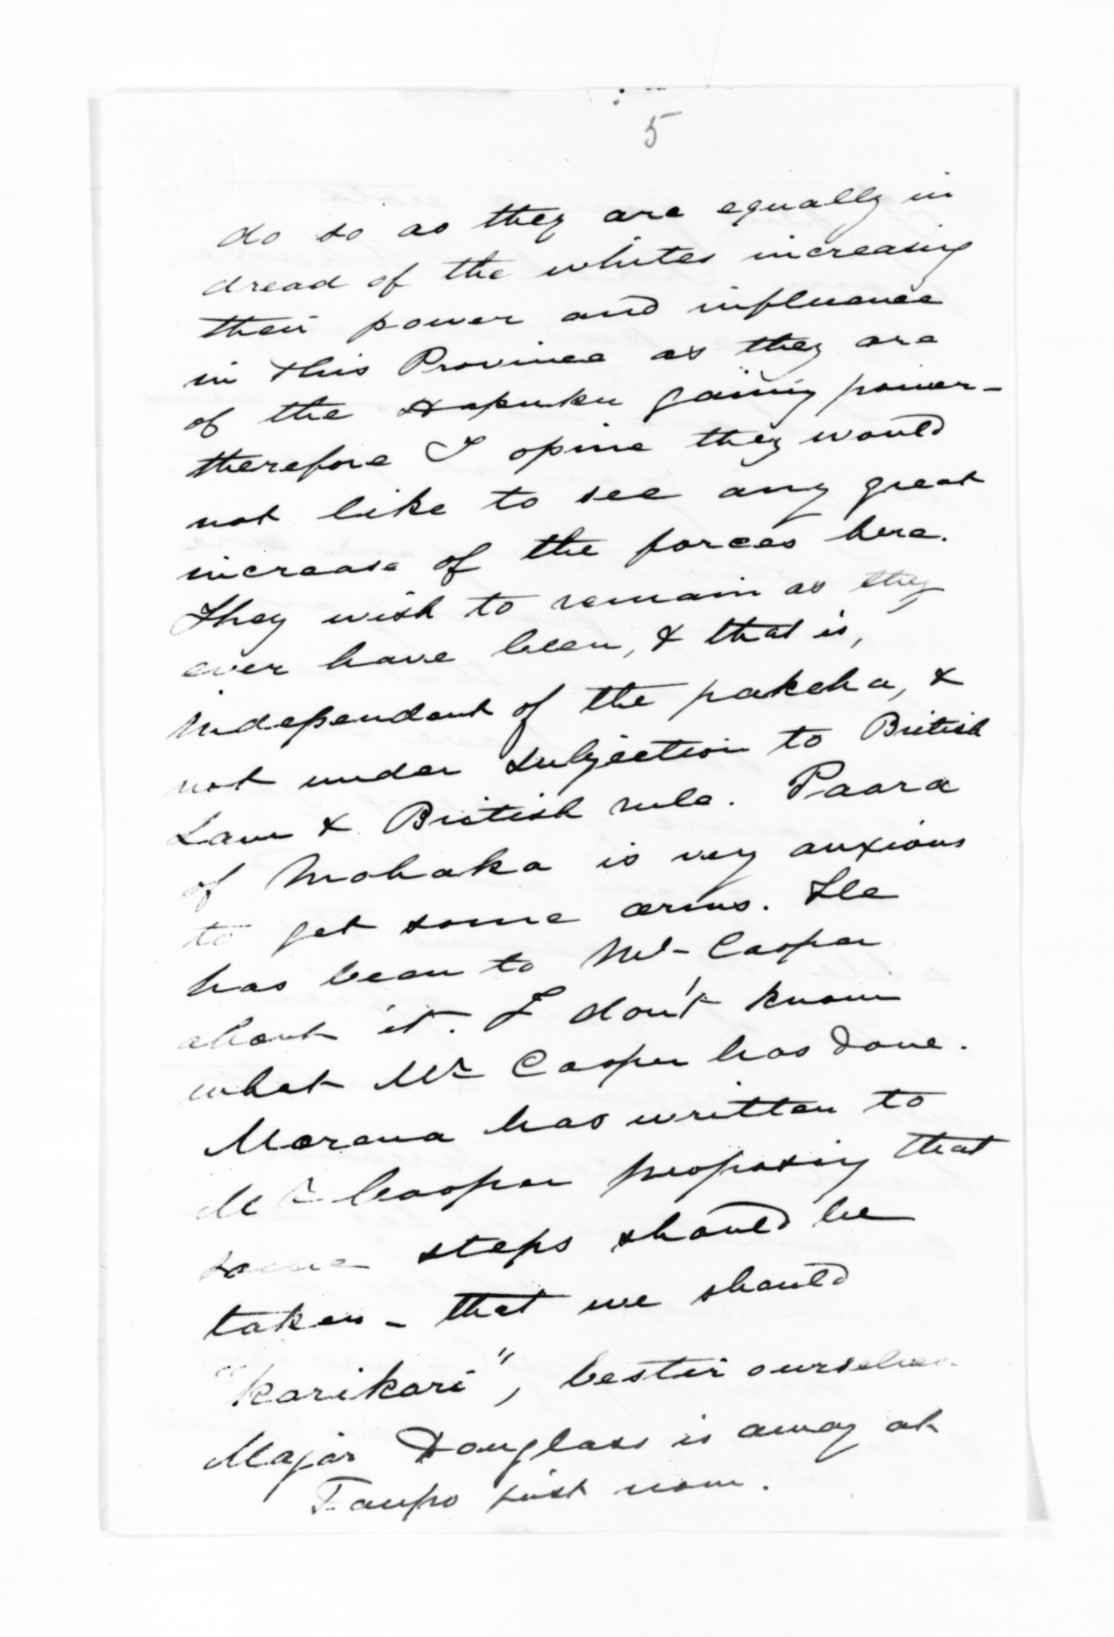 5
do so as they are equally in
dread of the whites increasing
their power and influence
in this Province as they are
of the Hapuku gaining power -
therefore I opine they would
not like to see any great
increase of the forces here.
They wish to remain as they
ever have been, & that is,
independent of the pakeha, &
not under subjection to British
Law & British rule. Paora
of Mohaka is very anxious
to get some arms. He
has been to Mr Cooper
about it. I don't know
what Mr Cooper has done.
Morena has written to
Mr Cooper proposing that
some steps should be
taken - that we should
"karikari", bestir ourselves.
Major Douglass is away at
Taupo just now.